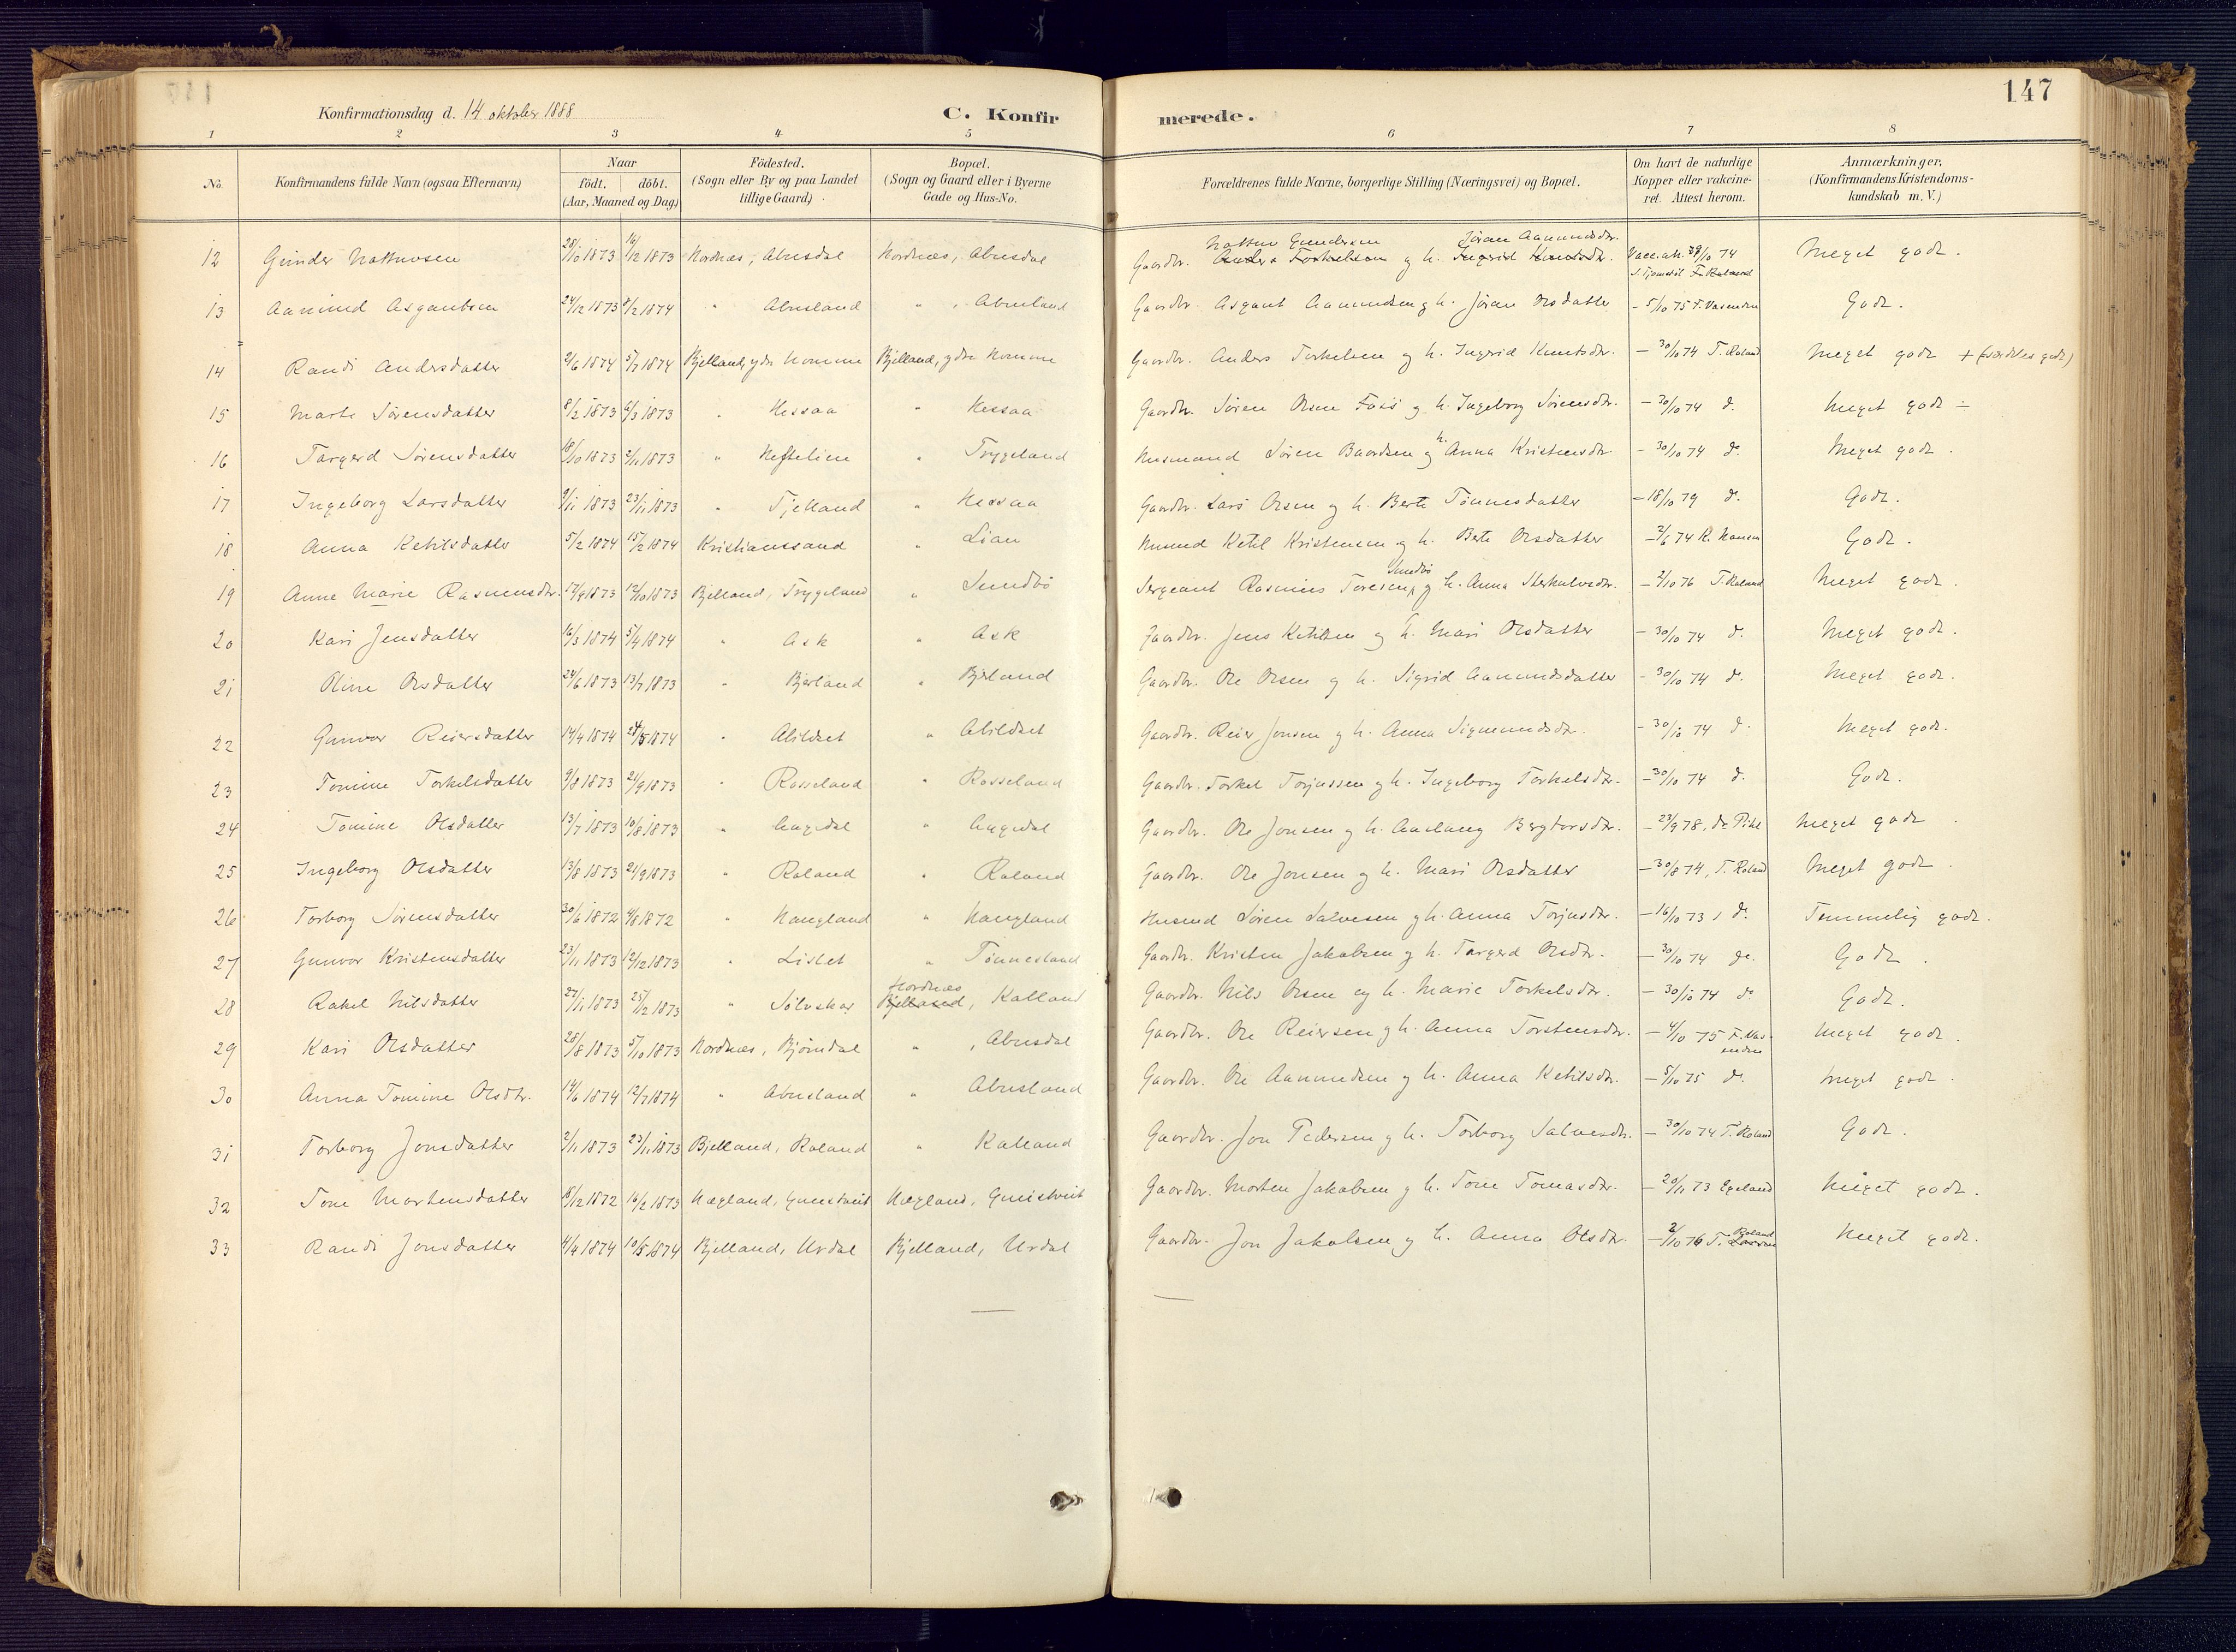 147
Konfirmationsdag d. 14 oktober 1888
C. Konfirmerede.
1 2 3 4 5 6 7 8
No. Konfirmandens fulde Navn (ogsaa Efternavn) Naar födt. döbt. (Aar, Maaned og Dag) Födested. (Sogn eller By og paa Landet tillige Gaard) Bopæl. (Sogn og Gaard eller i Byerne Gade og Hus-No. Forældrenes fulde Navne, borgerlige Stilling (Næringsvei) og Bopæl. Om havt de naturlige Kopper eller vakcineret. Attest herom. Anmærkninger, (Konfirmandens Kristendomskundskab m. V.)
12 Gunder 28/10 1873 16/12 1873 Hordnæs, Abusdal Hordnæs, Abusdal Gaardbr. Gundersen og h. Jöran Aanundsdr. Vacc.att. 74 Meget godt.
13 Aanund Asgautsen 24/12 1873 8/2 1874 " Abusland " , Abusland Gaardbr. Asgaut Aanundsen og h. Jöran Olsdatter - 5/10 75 F. Vasenden Godt.
14 Randi Andersdatter 2/6 1874 5/7 1874 Bjelland, ydre Homme Bjelland, ydre Homme Gaardbr. Anders Torkelsen og h. Ingerid Knutsdr. - 30/10 74 T. Roland Meget godt + (særdeles godt)
15 Marte Sörensdatter 8/2 1873 6/3 1873 " Hessaa " Hessaa Gaardbr. Sören Olsen Foss og h. Ingeborg Sörensdr. - 30/10 74 do. Meget godt ÷
16 Targerd Sörensdatter 18/10 1873 2/11 1873 " Heftelien " Trygeland Husmand Sören Baardsen og h. Anna Kristensdr. - 30/10 74 do. Meget godt.
17 Ingeborg Larsdatter 9/11 1873 23/11 1873 " Fjelland " Hessaa Gaardbr. Lars Olsen og h. Berte Tönnesdatter - 18/10 79 do. Godt.
18 Anna Ketilsdatter 5/2 1874 15/2 1874 Kristianssand " Lian Husmd Ketil Kristensen og h. Berte Olsdatter - 2/6 74 K. Hansen Godt.
19 Anne Marie Rasmusdr. 17/9 1873 12/10 1873 Bjelland, Trygeland " Sundbö Sergeant Rasmus Toresen Sundbö og h. Anna - 2/10 76 T. Roland Meget godt.
20 Kari Jensdatter 16/3 1874 5/4 1874 " Ask " Ask Gaardbr. Jens Ketilsen og h. Mari Olsdatter - 30/10 74 do. Meget godt.
21 Oline Olsdatter 24/6 1873 13/7 1873 " Bjerland " Bjerland Gaardbr. Ole Olsen og h. Sigrid Aanundsdatter - 30/10 74 do. Meget godt.
22 Gunvor Reiersdatter 14/4 1874 24/5 1874 " Abildset " Abildset Gaardbr. Reier Jonsen og h. Anna Sigmundsdr. - 30/10 74 do. Meget godt.
23 Tomine Torkelsdatter 9/8 1873 21/9 1873 " Rosseland " Rosseland Gaardbr. Torkel Torjussen og h. Ingeborg Torkelsdr. - 30/10 74 do. Godt.
24 Tomine Olsdatter 13/7 1873 10/8 1873 " " Gaardbr. Ole Jonsen og h. Aaslaug Bergtorsdr. - 23/9 78, Meget godt.
25 Ingeborg Olsdatter 13/8 1873 21/9 1873 " Roland " Roland Gaardbr. Ole Jonsen og h. Mari Olsdatter - 30/8 74, T. Roland Meget godt.
26 Torborg Sörensdatter 30/6 1872 4/8 1872 " Haugland " Haugland Husmd Sören Salvesen og h. Anna Torjusdr. - 16/10 73, do. Temmelig godt.
27 Gunvor Kristensdatter 23/11 1873 12/12 1873 " Lislet " Tönnesland Gaardbr. Kristen Jakobsen og h. Targerd Olsdtr. - 30/10 74 do. Godt.
28 Rakel Nilsdatter 27/11 1873 25/12 1873 " Sölvskar Hordnæs Bjelland, Kalland Gaardbr. Nils Olsen og h. Marie Torkelsdr. - 30/10 74 do. Godt.
29 Kari Olsdatter 28/8 1873 5/10 1873 Hordnæs, Björndal " , Abusdal Gaardbr. Ole Reiersen og h. Anna Torstensdr. - 4/10 75 F. Vasenden Meget godt.
30 Anna Tomine Olsdtr. 14/6 1874 12/7 1874 " Abusland " Abusland Gaardbr. Ole Aanundsen og h. Anna Ketilsdr. - 5/10 75 do. Meget godt.
31 Torborg Jonsdatter 2/11 1873 23/11 1873 Bjelland, Roland " Kalland Gaardbr. Jon Pedersen og h. Torborg Salvesdr. - 30/10 74 T. Roland Godt.
32 Tone Mortensdatter 18/12 1872 16/2 1873 Hægland, Hægland, Gaardbr. Morten Jakobsen og h. Tone Tomasdr. - 20/11 73 Egeland Meget godt.
33 Randi Jonsdatter 4/4 1874 10/5 1874 Bjelland, Urdal Bjelland, Urdal Gaardbr. Jon Jakobsen og h. Anna Olsdr. - 2/10 76 T. Roland Meget godt.